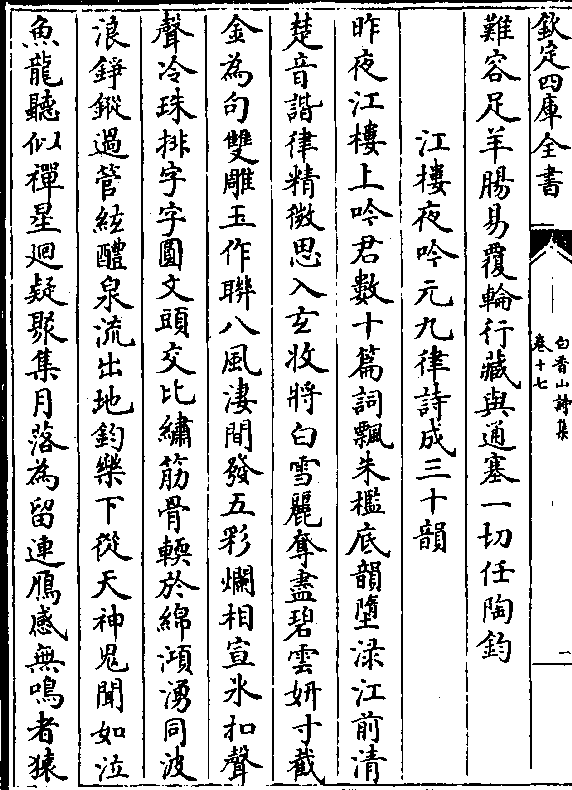 欽定四庫全書
白香山詩集
卷十七
一
難容足羊腸易覆輪行藏與通塞一切任陶鈞
江樓夜吟元九律詩成三十韻
昨夜江樓上吟君數十篇詞飄朱檻底韻墮淥江前清
楚音諧律精微思入玄收將白雪麗奪盡碧雲妍寸截
金為句雙雕玉作聯八風淒間發五彩爛相宣氷扣聲
聲冷珠排字字圓文頭交比繡筋骨輭於綿澒湧同波
浪錚鏦過管絃醴泉流出地鈞樂下從天神鬼聞如泣
魚龍聽似禪星廻疑聚集月落為留連鴈感無鳴者猿